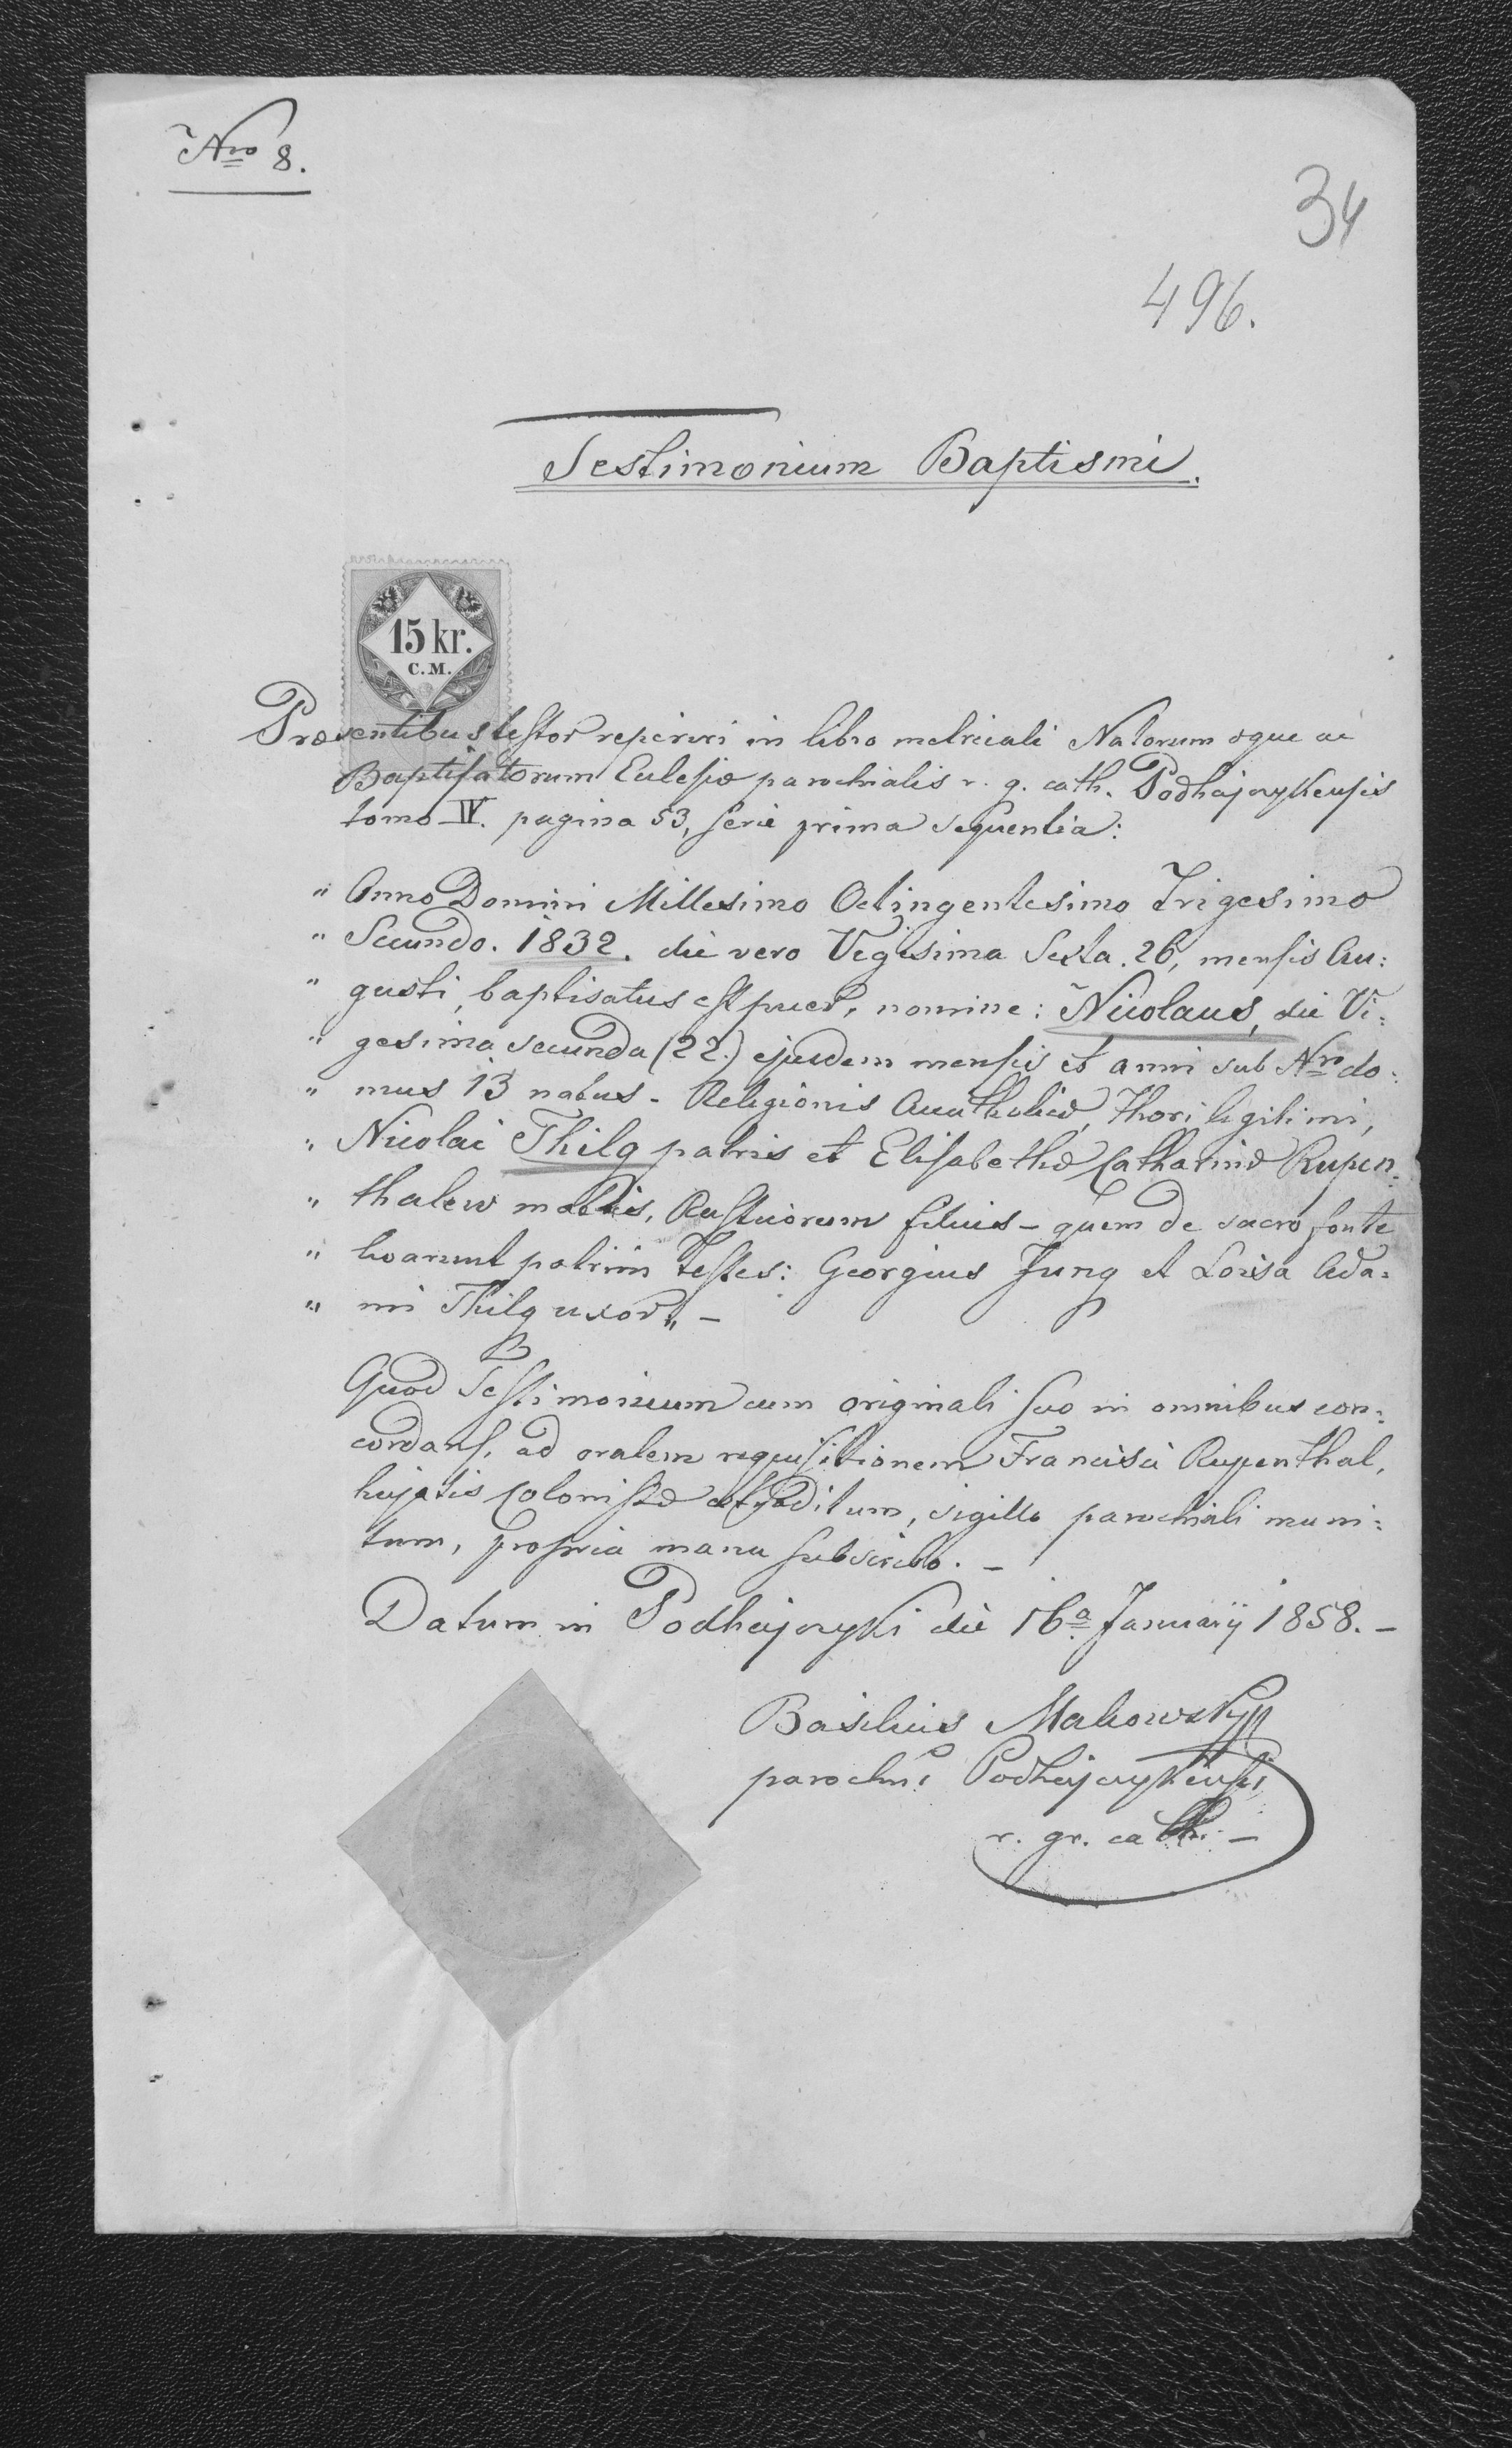 Nro 8.
34
496.
Testimonium Baptismi.
15 kr.
C.M.
Præsentibus testor reperiri in libro metricali Natorum æque ac
Baptisatorum Eclesiæ parochialis r. g. cath. Podhajczykensis
tomo IV. pagina 53, serie prima sequentia:
" Anno Domini Millesimo Octingentesimo Trigesimo
" Secundo. 1832. die vero Vigesima Sexta. 26, mensis Au:
" gusti, baptisatus est puer, nomine: Nicolaus, die Vi:
" gesima secunda (22.) ejusdem mensis et anni sub Nro do:
" mus 13 natus - Religionis Acatholicæ, Thori legitimi,
" Nicolai Thilg patris et Elisabethæ Catharinæ Rupen:
" thalew matris, Rusticorum filius - quem de sacro fonte
" levarunt patrini Testes: Georgius Jung et Loisa Ada:
" mi Thilg uxor" -
Quod Testimonium cum originali suo in omnibus con:
cordans, ad oralem requisitionem Francisci Rupenthal,
hujatis Colonistæ extraditum, sigillo parochiali muni:
tum, propria manu subscribo. -
Datum in Podhajczyki die 16a Januarij 1858. -
Basilius Makowsky
parochus Podhajczykensis
r. gr. cath. -